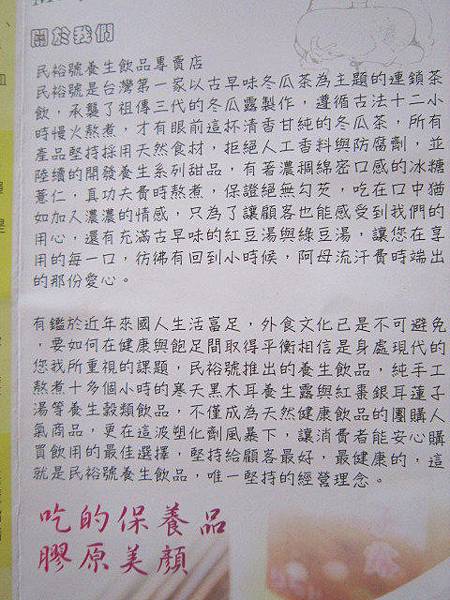 關於我們
民裕號養生飲品專賣店
民裕號是台灣第一家以古早味冬瓜茶為主題的連鎖茶
飲，承襲了祖傳三代的冬瓜露製作，遵循古法十二小
時慢火熬煮，才有眼前這杯清香甘純的冬瓜茶，所有
產品堅持採用天然食材，拒絕人工香料與防腐劑，並
陸續的開發養生系列甜品，有著濃稠綿密口感的冰糖
薏仁，真功夫費時熬煮，保證絕無勾芡，吃在口中猶
如加入濃濃的情感，只為了讓顧客也能感受到我們的
用心，還有充滿古早味的紅豆湯與綠豆湯，讓您在享
用的每一口，彷彿有回到小時候，阿母流汗費時端出
的那份愛心。
有鑑於近年來國人生活富足，外食文化已是不可避免
，要如何在健康與飽足間取得平衡相信是身處現代的
您我所重視的課題，民裕號推出的養生飲品，純手工
熬煮十多個小時的寒天黑木耳養生露與紅棗銀耳蓮子
湯等養生穀類飲品，不僅成為天然健康飲品的團購人
氣商品，更在這波塑化劑風暴下，讓消費者能安心購
買飲用的最佳選擇，堅持給顧客最好，最健康的，這
就是民裕號養生飲品，唯一堅持的經營理念。
吃的保養品
膠原美顏